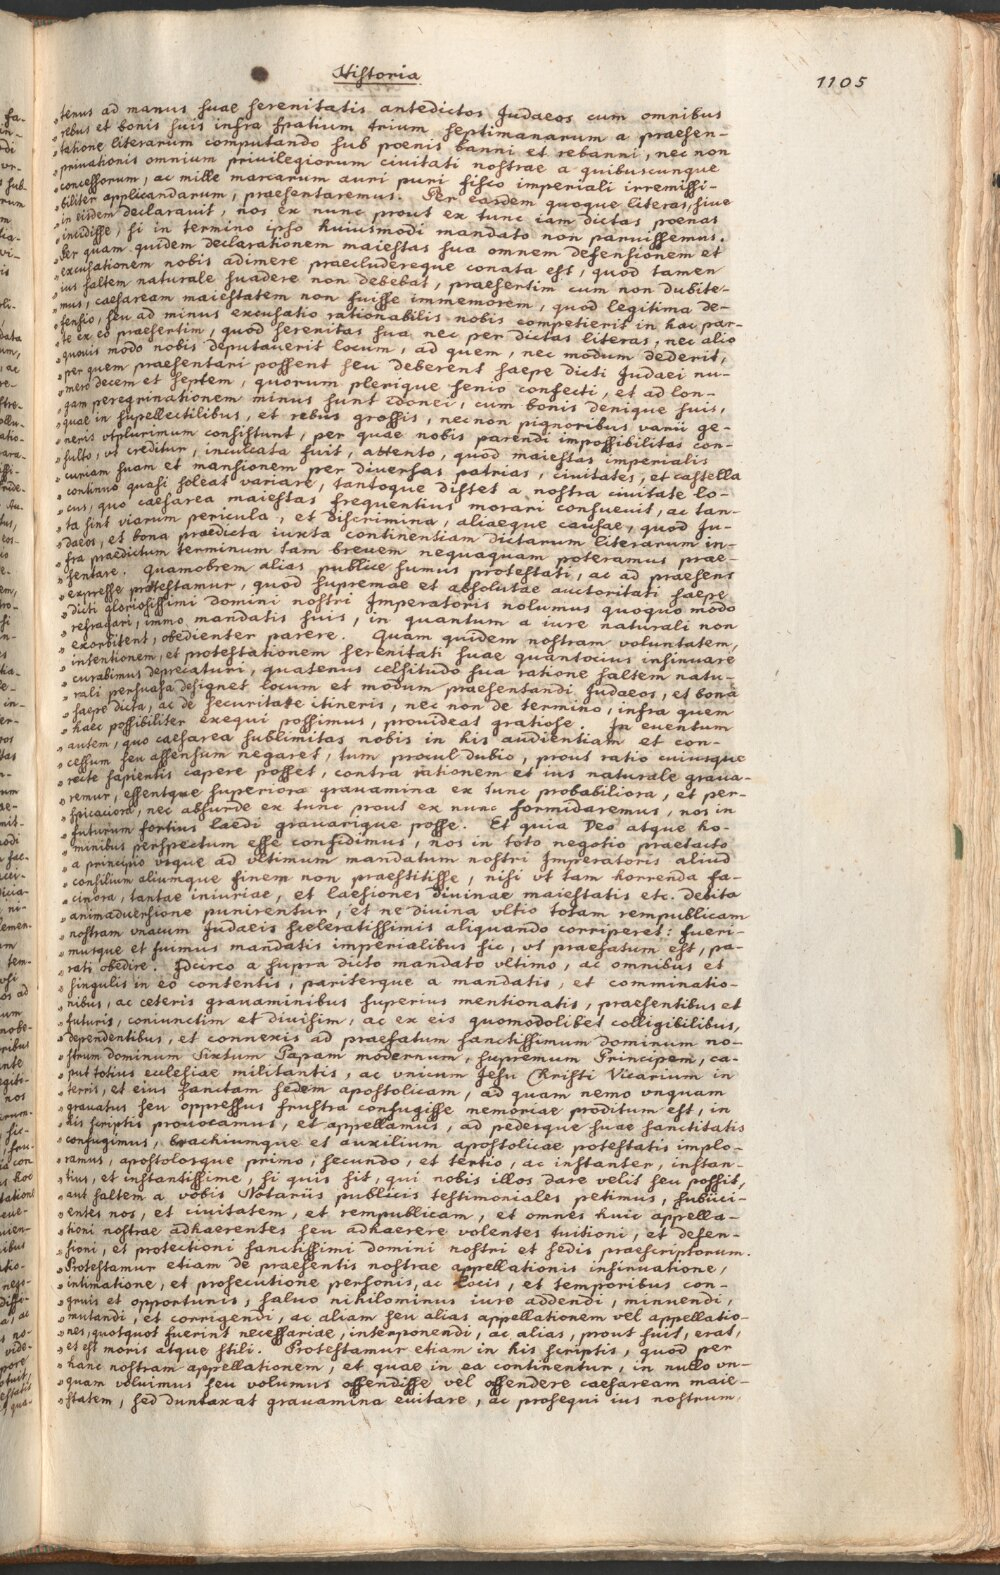 Historia
1105
„tenus ad manus suae serenitatis antedictos Judaeos cum omnibus
„rebus et bonis suis infra spatium trium septimanarum a praesen-
„tatione literarum computando sub poenis banni et rebanni, nec non
„privationis omnium privilegiorum civitati nostrae a quibuscunque
„concessorum, ac mille marcarum auri puri fisco imperiali irremissi-
„biliter applicandarum, praesentaremus. Per easdem quoque literas, sive
„in eisdem declaravit, nos ex nunc prout ex tunc iam dictas poenas
„incidisse, si in termino ipso huiusmodi mandato non paruissemus.
„Per quam quidem declarationem maiestas sua omnem defensionem et
„excusationem nobis adimere praecludereque conata est, quod tamen
„ius saltem naturale suadere non debebat, praesertim cum non dubite-
„mus, caesaream maiestatem non fuisse immemorem, quod legitima de-
„fensio, seu ad minus excusatio rationabilis nobis competierit in hac par-
„te ex eo praesertim, quod serenitas sua nec per dictas literas, nec alio
„quovis modo nobis deputaverit locum, ad quem, nec modum dederit,
„per quem praesentari possent seu deberent saepe dicti Judaei nu-
„mero decem et septem, quorum plerique senio confecti, et ad lon-
„gam peregrinationem minus sunt idonei, cum bonis denique suis,
„quae in supellectilibus, et rebus grossis, necnon pignoribus varii ge-
„neris vtplurimum consistunt, per quae nobis parendi impossibilitas con-
„sulto, vt creditur, inculcata fuit, attento, quod maiestas imperialis
„curiam suam et mansionem per diversas patrias, civitates, et castella
„continuo quasi soleat variare, tantoque distet a nostra civitate lo-
„cus, quo caesarea maiestas frequentius morari consuevit, ac tan-
„ta sint viarum pericula, et discrimina, aliaeque causae, quod Ju-
„daeos, et bona praedicta iuxta continentiam dictarum literarum in-
„fra praedictum terminum tam brevem nequaquam poteramus prae-
„sentare. Quamobrem alias publice sumus protestati, ac ad praesens
„expresse protestamur, quod supremae et absolutae auctoritati saepe
„dicti gloriosissimi domini nostri Imperatoris nolumus quoquo modo
„refragari, immo mandatis suis, in quantum a iure naturali non
„exorbitent, obedienter parere. Quam quidem nostram voluntatem,
„intentionem, et protestationem serenitati suae quantocius insinuare
„curabimus deprecaturi, quatenus celsitudo sua ratione saltem natu-
„rali persuasa designet locum et modum praesentandi Judaeos, et bona
„saepe dicta, ac de securitate itineris, nec non de termino, infra quem
„haec possibiliter exequi possimus, provideat gratiose. In eventum
„autem, quo caesarea sublimitas nobis in his audientiam et con-
„cessum seu assensum negaret, tum procul dubio, prout ratio cuiusque
„recte sapientis capere posset, contra rationem et ius naturale grava-
„remur, essentque superiora gravamina ex tunc probabiliora, et per-
„spicaciora, nec absurde ex tunc prout ex nunc formidaremus, nos in
„futurum fortius laedi gravarique posse. Et quia Deo atque ho-
„minibus perspectum esse confidimus, nos in toto negotio praetacto
„a principio vsque ad vltimum mandatum nostri Imperatoris aliud
„consilium aliumque finem non praestitisse, nisi vt tam horrenda fa-
„cinora, tantae iniuriae, et laesiones divinae maiestatis etc. debita
„animadversione punirentur, et ne divina vltio totam rempublicam
„nostram vnacum Judaeis sceleratissimis aliquando corriperet: fueri-
„musque et fuimus mandatis imperialibus sic, vt praefatum est, pa-
„rati obedire. Idcirco a supra dicto mandato vltimo, ac omnibus et
„singulis in eo contentis, pariterque a mandatis, et comminatio-
„nibus, ac ceteris gravaminibus superius mentionatis, praesentibus et
„futuris, coniunctim et divisim, ac ex eis quomodolibet colligibilibus,
„dependentibus, et connexis ad praefatum sanctissimum dominum no-
„strum dominum Sixtum Papam modernum, supremum Principem, ca-
„put totius ecclesiae militantis, ac vnicum Jesu Christi Vicarium in
„terris, et eius sanctam sedem apostolicam, ad quam nemo vnquam
„gravatus seu oppressus frustra confugisse memoriae proditum est, in
„his scriptis provocamus, et appellamus, ad pedesque suae sanctitatis
„confugimus, brachiumque et auxilium apostolicae potestatis implo-
„ramus, apostolosque primo, secundo, et tertio, ac instanter, instan-
„tius, et instantissime, si quis sit, qui nobis illos dare velit seu possit,
„aut saltem a vobis Notariis publicis testimoniales petimus, subiici-
„entes nos, et civitatem, et rempublicam, et omnes huic appella-
„tioni nostrae adhaerentes seu adhaerere volentes tuitioni, et defen-
„sioni, et protectioni sanctissimi domini nostri et sedis praescriptorum.
„Protestamur etiam de praesentis nostrae appellationis insinuatione,
„intimatione, et prosecutione personis, ac locis, et temporibus con-
„gruis et opportunis, salvo nihilominus iure addendi, minuendi,
„mutandi, et corrigendi, ac aliam seu alias appellationem vel appellatio-
„nes, quotquot fuerint necessariae, interponendi, ac alias, prout fuit, erat,
„et est moris atque stili. Protestamur etiam in his scriptis, quod per
„hanc nostram appellationem, et quae in ea continentur, in nullo vn-
„quam voluimus seu volumus offendisse vel offendere caesaream maie-
„statem, sed duntaxat gravamina evitare, ac prosequi ius nostrum,